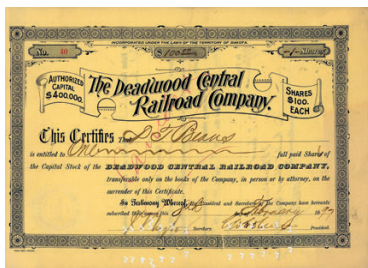 INCORPORATED UNDER THE LAWS OF THE TERRITORY OF DAKOTA.
No. 40
$100.00
AUTHORIZED CAPITAL $400,000.
The Deadwood Central Railroad Company.
SHARES $100. EACH
This Certifies That
is entitled to One full paid Shares of
the Capital Stock of the DEADWOOD CENTRAL RAILROAD COMPANY,
transferable only on the books of the Company, in person or by attorney, on the
surrender of this Certificate.
In Testimony Whereof, the President and Secretary of the Company have hereunto
subscribed their names this
Secretary. President.